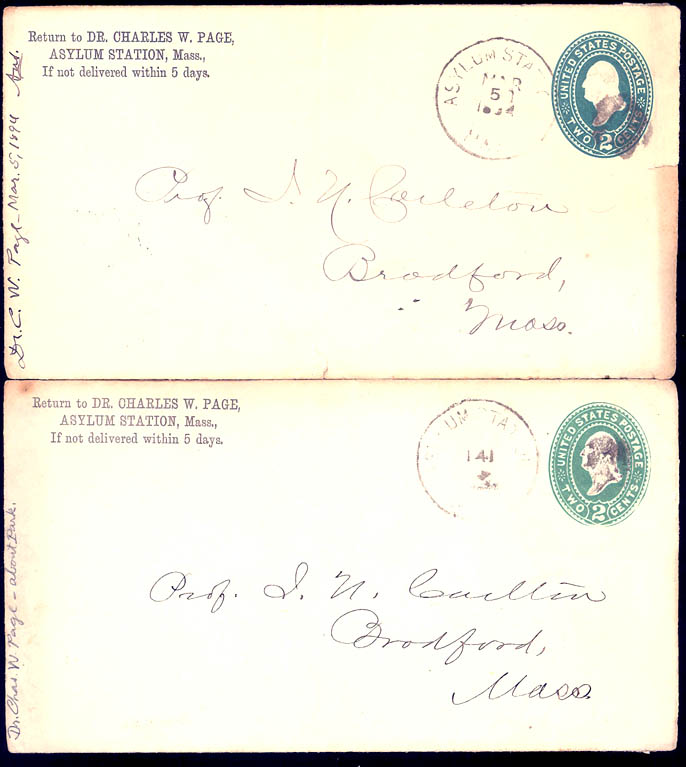 Return to DR. CHARLES W. PAGE,
ASYLUM STATION, Mass.,
If not delivered within 5 days.
Dr. C. W. Page - Mar. 5, 1894
ASYLUM STAT
MAR
5
1894
UNITED STATES POSTAGE
TWO 2 CENTS
Prof. I. N. Carleton
Bradford,
Mass.
Return to DR. CHARLES W. PAGE,
ASYLUM STATION, Mass.,
If not delivered within 5 days.
Dr. Chas. W. Page - about Park.
YLUM STATIO
14
UNITED STATES POSTAGE
TWO 2 CENTS
Prof. I. N. Carleton
Bradford,
Mass.